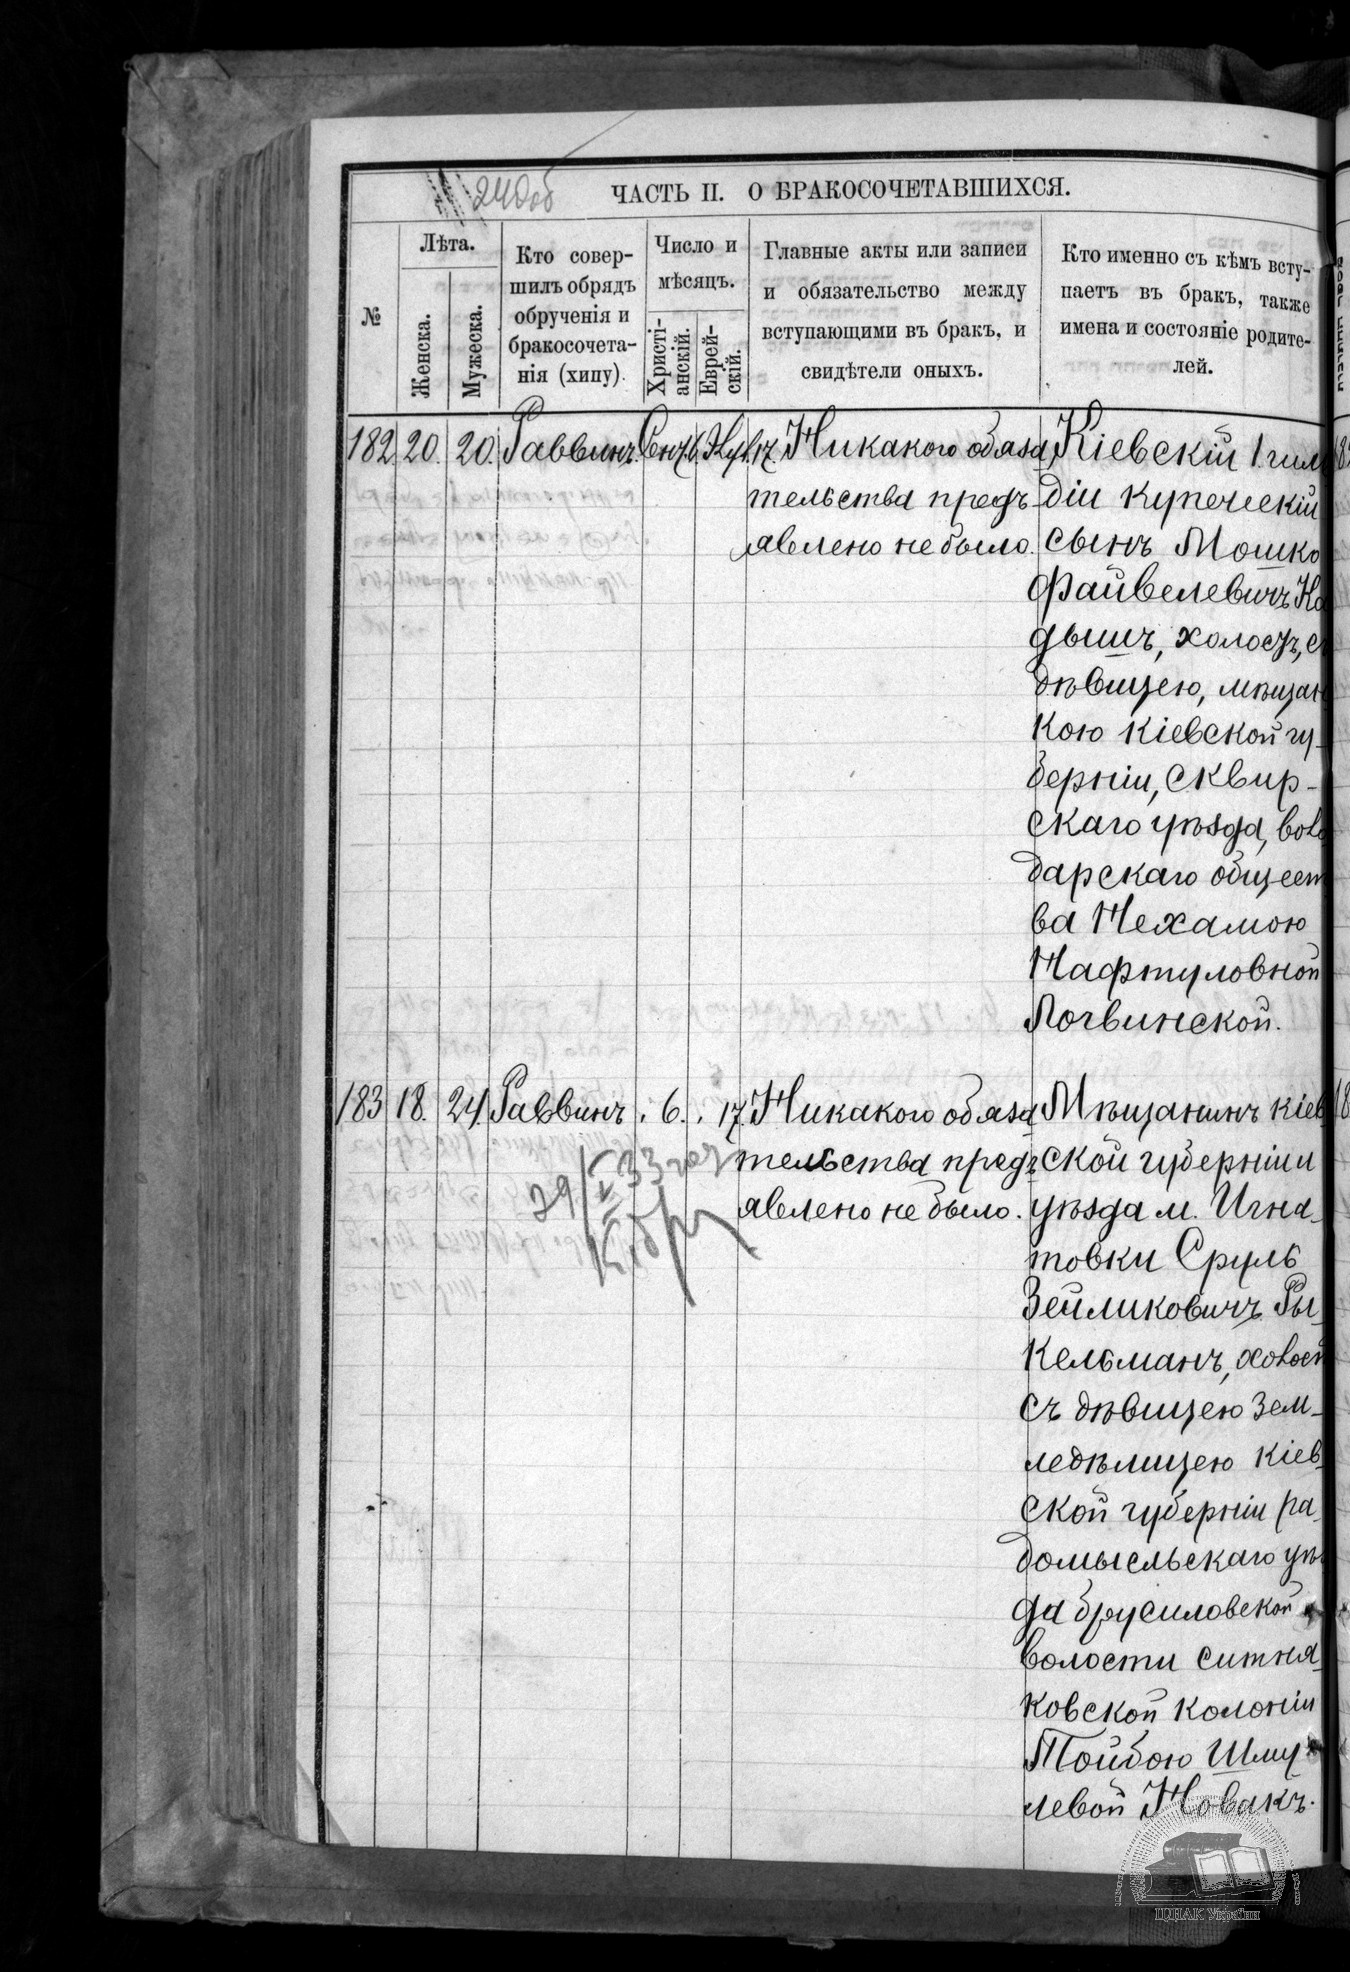 240об
ЧАСТЬ II. О БРАКОСОЧЕТАВШИХСЯ.
№
Лѣта.
Женска.
Мужеска.
Кто совер-
шилъ обрядъ
обрученія и
бракосочета-
нія (хипу).
Число и
мѣсяцъ.
Христі-
анскій.
Еврей-
скій.
Главные акты или записи
и обязательство между
вступающими въ бракъ, и
свидѣтели оныхъ.
Кто именно съ кѣмъ всту-
паетъ въ бракъ, также
имена и состояніе родите-
лей.
182. 20. 20. Раввинъ. 6. 17. Никакого обяза
тельства предъ
явлено не было.
Кіевскій 1. гил
діи купеческій
сынъ Мошко
Файвелевичъ Ка
дышъ, холостъ, съ
дѣвицею, мѣщан
кою кіевской гу-
берніи, сквир-
скаго уѣзда, воло
дарскаго общест
ва Нехамою
Нафтуловной
Логвинской.
183 18. 24. Раввинъ. 6. 17. Никакого обяза
тельства предъ
явлено не было.
Мѣщанинъ кіев
ской губерніи и
уѣзда м. Игна-
товки Сруль
Зейликовичъ Ры-
кельманъ, холост
съ дѣвицею зем-
ледѣлицею кіев-
ской губерніи ра-
домысльскаго уѣз
да брусиловской
волости ситня-
ковской колоніи
Тойбою Шму-
левой Новакъ.
29/V 33
ЦДІАК України